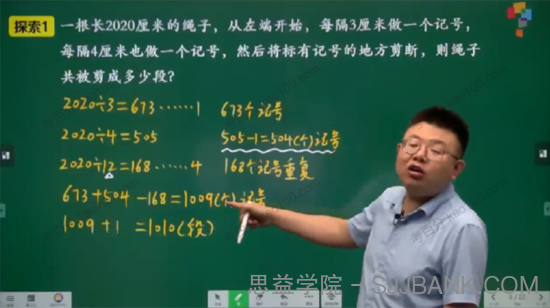 探索1
一根长2020厘米的绳子，从左端开始，每隔3厘米做一个记号，
每隔4厘米也做一个记号，然后将标有记号的地方剪断，则绳子
共被剪成多少段？
2020÷3=673……1 673个记号
2020÷4=505 505-1=504(个)记号
2020÷12=168……4 168个记号重复
673+504-168=1009(个)记号
1009+1=1010(段)
思益学院 - SIJJBANK.COM